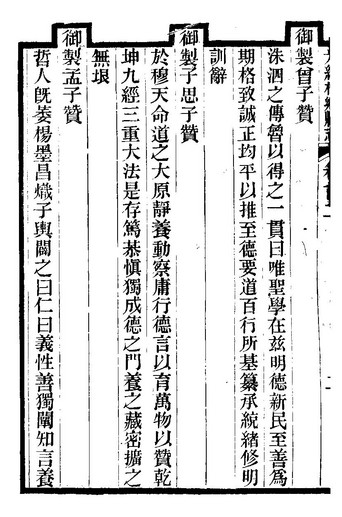 御製曾子贊
洙泗之傳曾以得之一貫曰唯聖學在兹明德新民至善爲
期格致誠正均平以推至德要道百行所基纂承統緒修明
訓辭
御製子思子贊
於穆天命道之大原靜養動察庸行德言以育萬物以贊乾
坤九經三重大法是存篤恭愼獨成德之門卷之藏密擴之
無垠
御製孟子贊
哲人旣萎楊墨昌熾子輿闢之曰仁曰義性善獨闡知言養